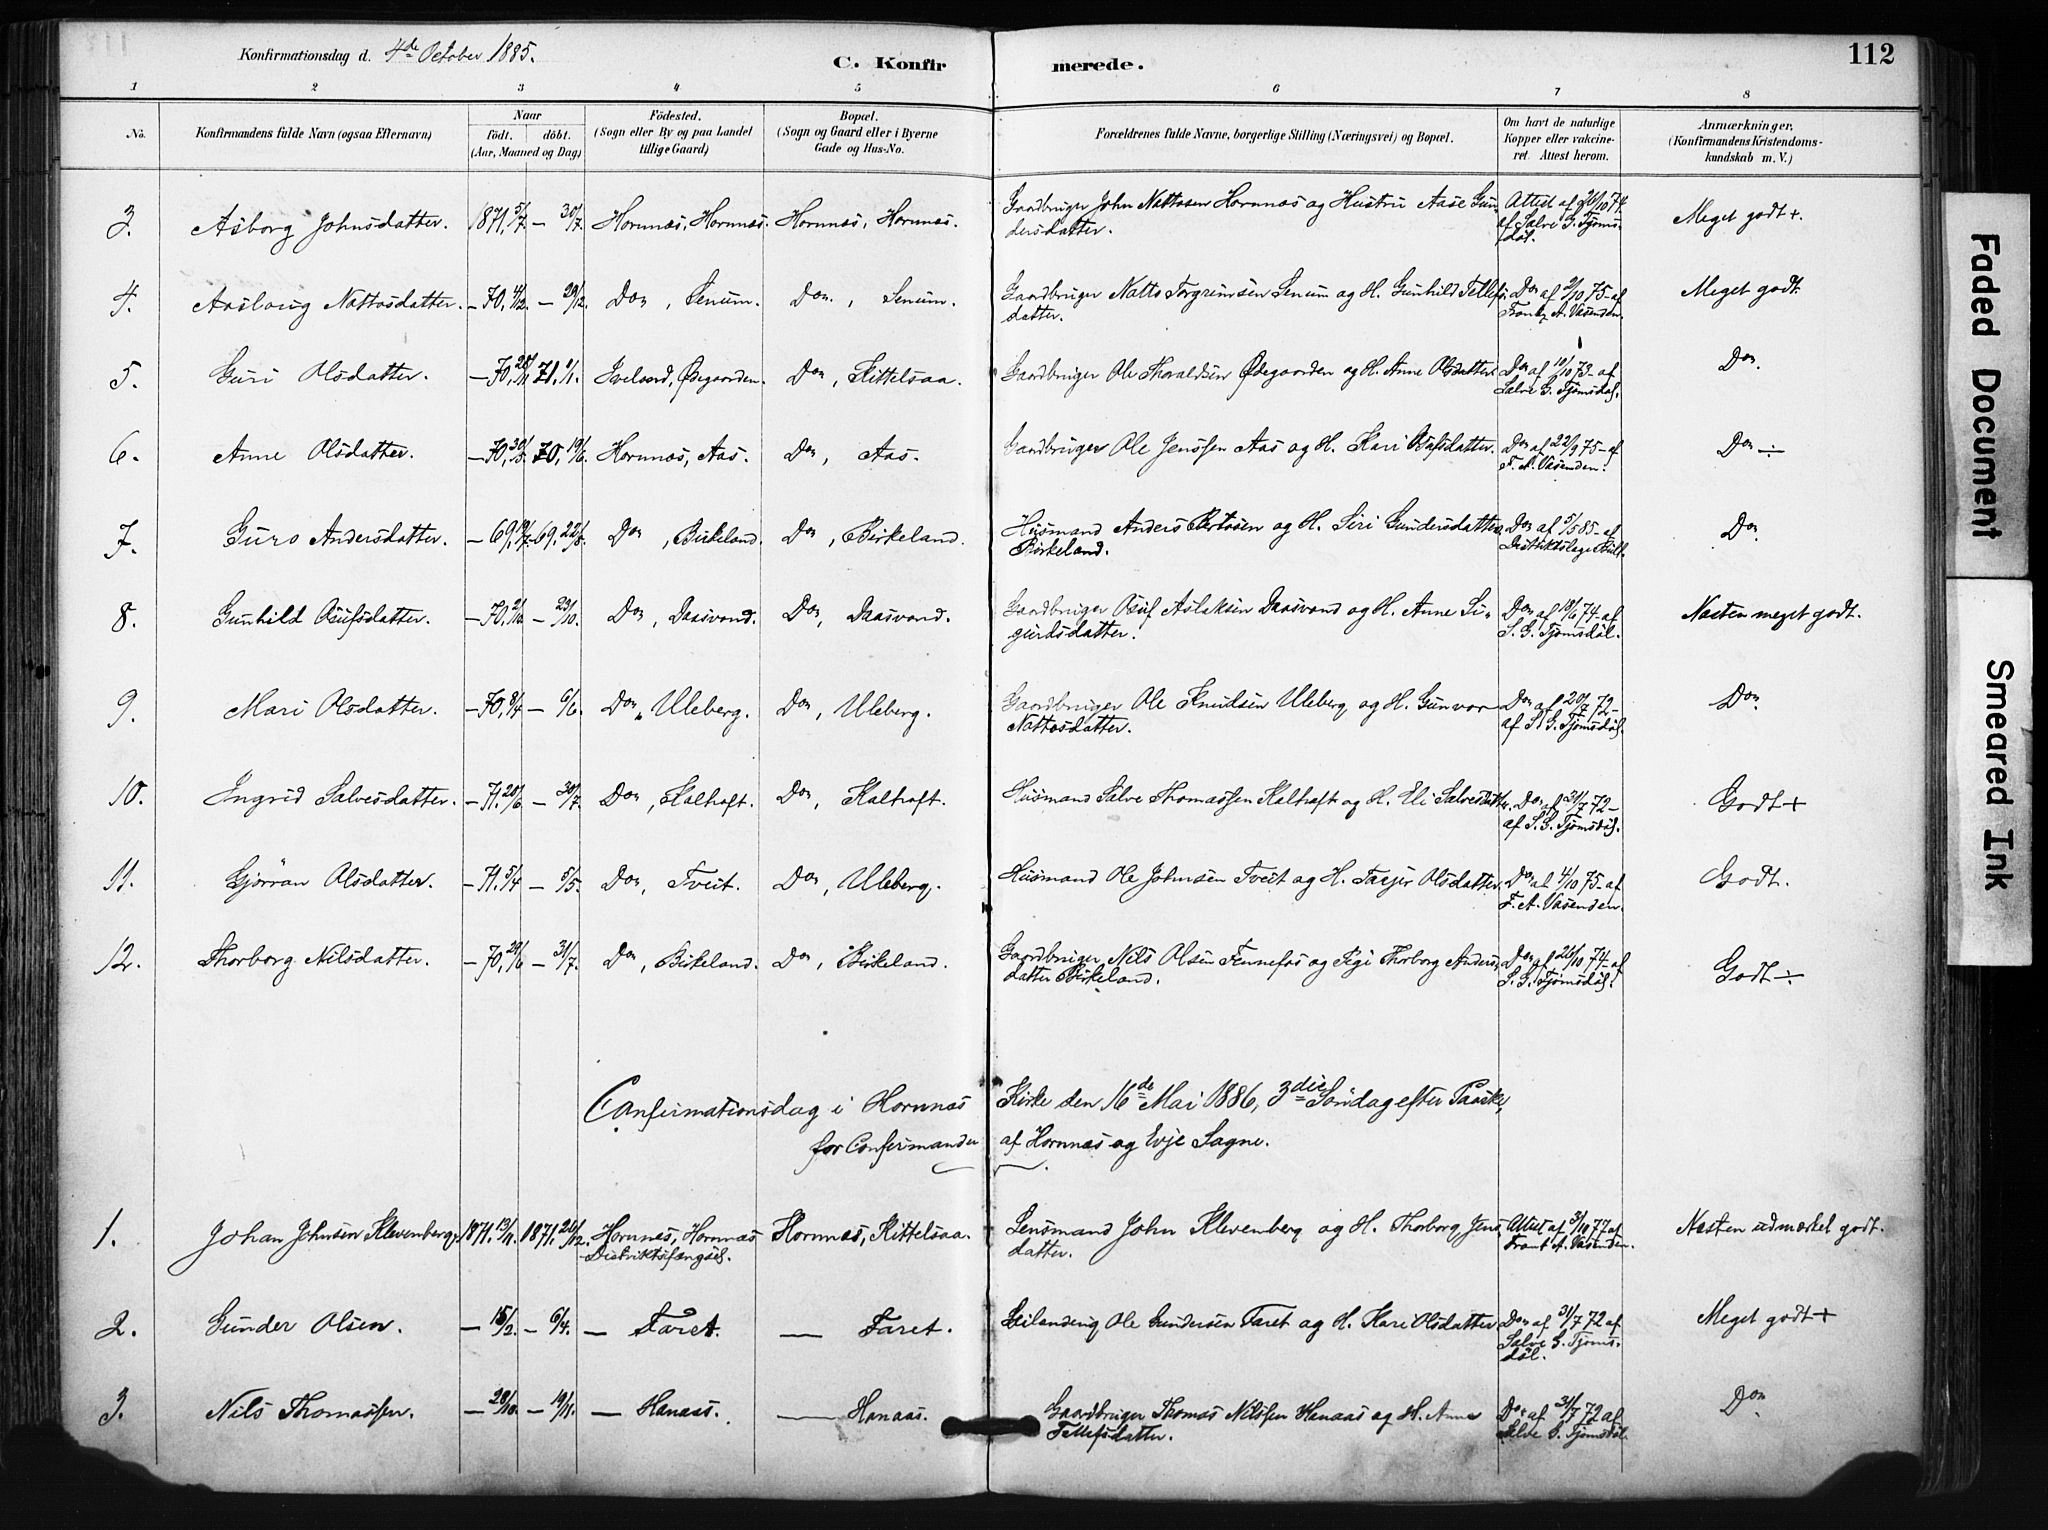 Konfirmationsdag d. 4de October 1885.
C. Konfirmerede.
112
1 2 3 4 5 6 7 8
No. Konfirmandens fulde Navn (ogsaa Efternavn)
Naar födt. döbt. (Aar, Maaned og Dag)
Födested. (Sogn eller By og paa Landet tillige Gaard)
Bopæl. (Sogn og Gaard eller i Byerne Gade og Hus-No.
Forældrenes fulde Navne, borgerlige Stilling (Næringsvei) og Bopæl.
Om havt de naturlige Kopper eller vakcineret. Attest herom.
Anmærkninger. (Konfirmandens Kristendomskundskab m. V.)
3. Asborg Johnsdatter. 1871, 5/7. — 30/7. Hornnæs, Hornnæs. Hornnæs, Hornnæs. Gaardbruger John Nattosen Hornnæs og Hustru Aase Gundersdatter. Attest af 26/10 74 af Salve G. Tjomsdøl. Meget godt +.
4. Aaslaug Nattosdatter. — 70, 4/12. — 29/12. Don, Senum. Don, Senum. Gaardbruger Natto Torgrimsen Senum og H. Gunhild Tellefsdatter. Don af 9/10 75 - af Frantz A. Vasenden. Meget godt.
5. Guri Olsdatter. — 70, 28/11 71. 1/1. Iveland, Ødegaarden. Don, Kittelsaa. Gaardbruger Ole Thoraldsen Ødegaarden og H. Anne Olsdatter. Don af 10/10 73 - af Salve G. Tjomsdøl. Don.
6. Anne Olsdatter. — 70, 30/5. 70, 19/6. Hornnæs, Aas. Don, Aas. Gaardbruger Ole Jenssen Aas og H. Kari Osufsdatter. Don af 22/9 75 - af F. A. Vasenden. Don ÷
7. Guro Andersdatter. — 69, 19/7 - 69. 22/8. Don, Birkeland. Don, Birkeland. Husmand Anders Bertosen og H. Siri Gundersdatter Birkeland. Don af 5/5 85 - af Distriktslæge Don
8. Gunhild Osufsdatter. — 70, 2/10 — 23/10. Don, Daasvand. Don, Daasvand. Gaardbruger Osuf Aslaksen Daasvand og H. Anne Sigurdsdatter. Don af 19/6 74 - af S. G. Tjomsdøl. Næsten meget godt.
9. Mari Olsdatter. — 70, 8/4 — 6/6. Don, Uleberg. Don, Uleberg. Gaardbruger Ole Knudsen Uleberg og H. Gunvor Nattosdatter. Don af 20/7 72 - af S. G. Tjomsdøl. Don.
10. Ingrid Salvesdatter. — 71. 20/6. — 30/7. Don, Kalhaft. Don, Kalhaft. Husmand Salve Thomassen Kalhaft og H. Eli Salvesdatter. Don af 31/7 72 - af S. G. Tjomsdøl. Godt +
11. Gjøran Olsdatter. — 71. 5/4 — 5/5. Don, Tveit. Don, Uleberg. Husmand Ole Johnsen Tveit og H. Tarjer Olsdatter. Don af 4/10 75 - af F. A. Vasenden. Godt.
12. Thorborg Nilsdatter. — 70, 29/6 — 31/7. Don, Birkeland. Don, Birkeland. Gaardbruger Nils Olsen Fennefos og Pige Thorborg Andersdatter Birkeland. Don af 26/10 74 - af S. G. Tjomsdøl. Godt ÷
Confirmationsdag i Hornnæs Kirke den 16de Mai 1886, 3die Søndag efter Paaske,
for Confirmander af Hornnæs og Evje Sogne.
1. Johan Johnsen Klevenberg. 1871. 13/11. 1871. 26/12. Hornnæs, Hornnæs Distriktsfængsel. Hornnæs, Kittelsaa. Lensmand John Klevenberg og H. Thorborg Jensdatter. Attest af 3/10 77 af Frant A. Vasenden. Næsten udmærket godt.
2. Gunder Olsen. — 15/2. — 6/4. — Faret. — Faret. Leilænding Ole Gundersen Faret og H. Kari Olsdatter Don af 31/7 72 af Salve G. Tjomsdøl. Meget godt +
3. Nils Thomassen. — 28/10. — 19/11. — Hanaas. — Hanaas. Gaardbruger Thomas Nilssen Hanaas og H. Anne Tellefsdatter. Don af 31/7 72 af Salve G. Tjomsdøl Don
Faded Document
Smeared Ink